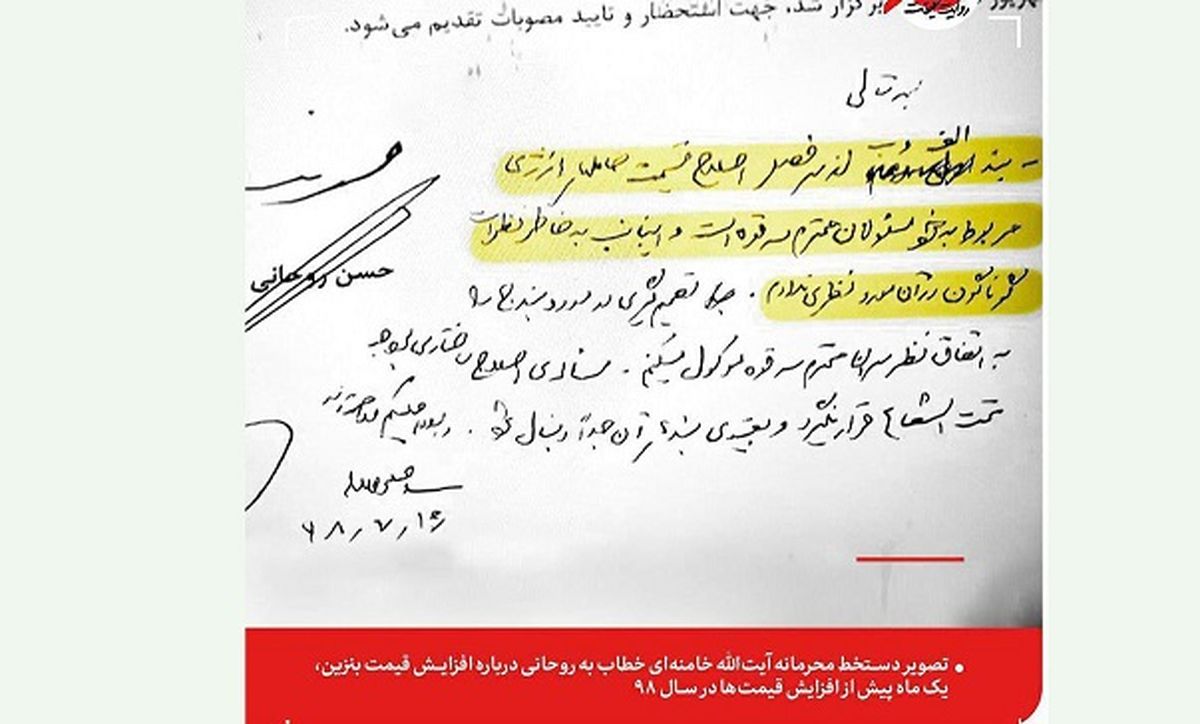 برگزار شد، جهت استحضار و تایید مصوبات تقدیم می‌شود.
بسمه تعالی
- بند الف از سرفصل اصلاح قیمت حاملهای انرژی
مربوط به مسئولان محترم سه قوه است و اینجانب به خاطر نظرات
گوناگون در آن مورد نظری ندارم. تصمیم‌گیری در مورد بند ج را
به اتفاق نظر سران محترم سه قوه موکول میکنم. اصلاح ساختاری بودجه
تحت الشعاع قرار نگیرد و بقیه‌ی آن جداً دنبال شود.
حسن روحانی
۹۸/۷/۱۶
• تصویر دستخط محرمانه آیت‌الله خامنه‌ای خطاب به روحانی درباره افزایش قیمت بنزین،
یک ماه پیش از افزایش قیمت‌ها در سال ۹۸